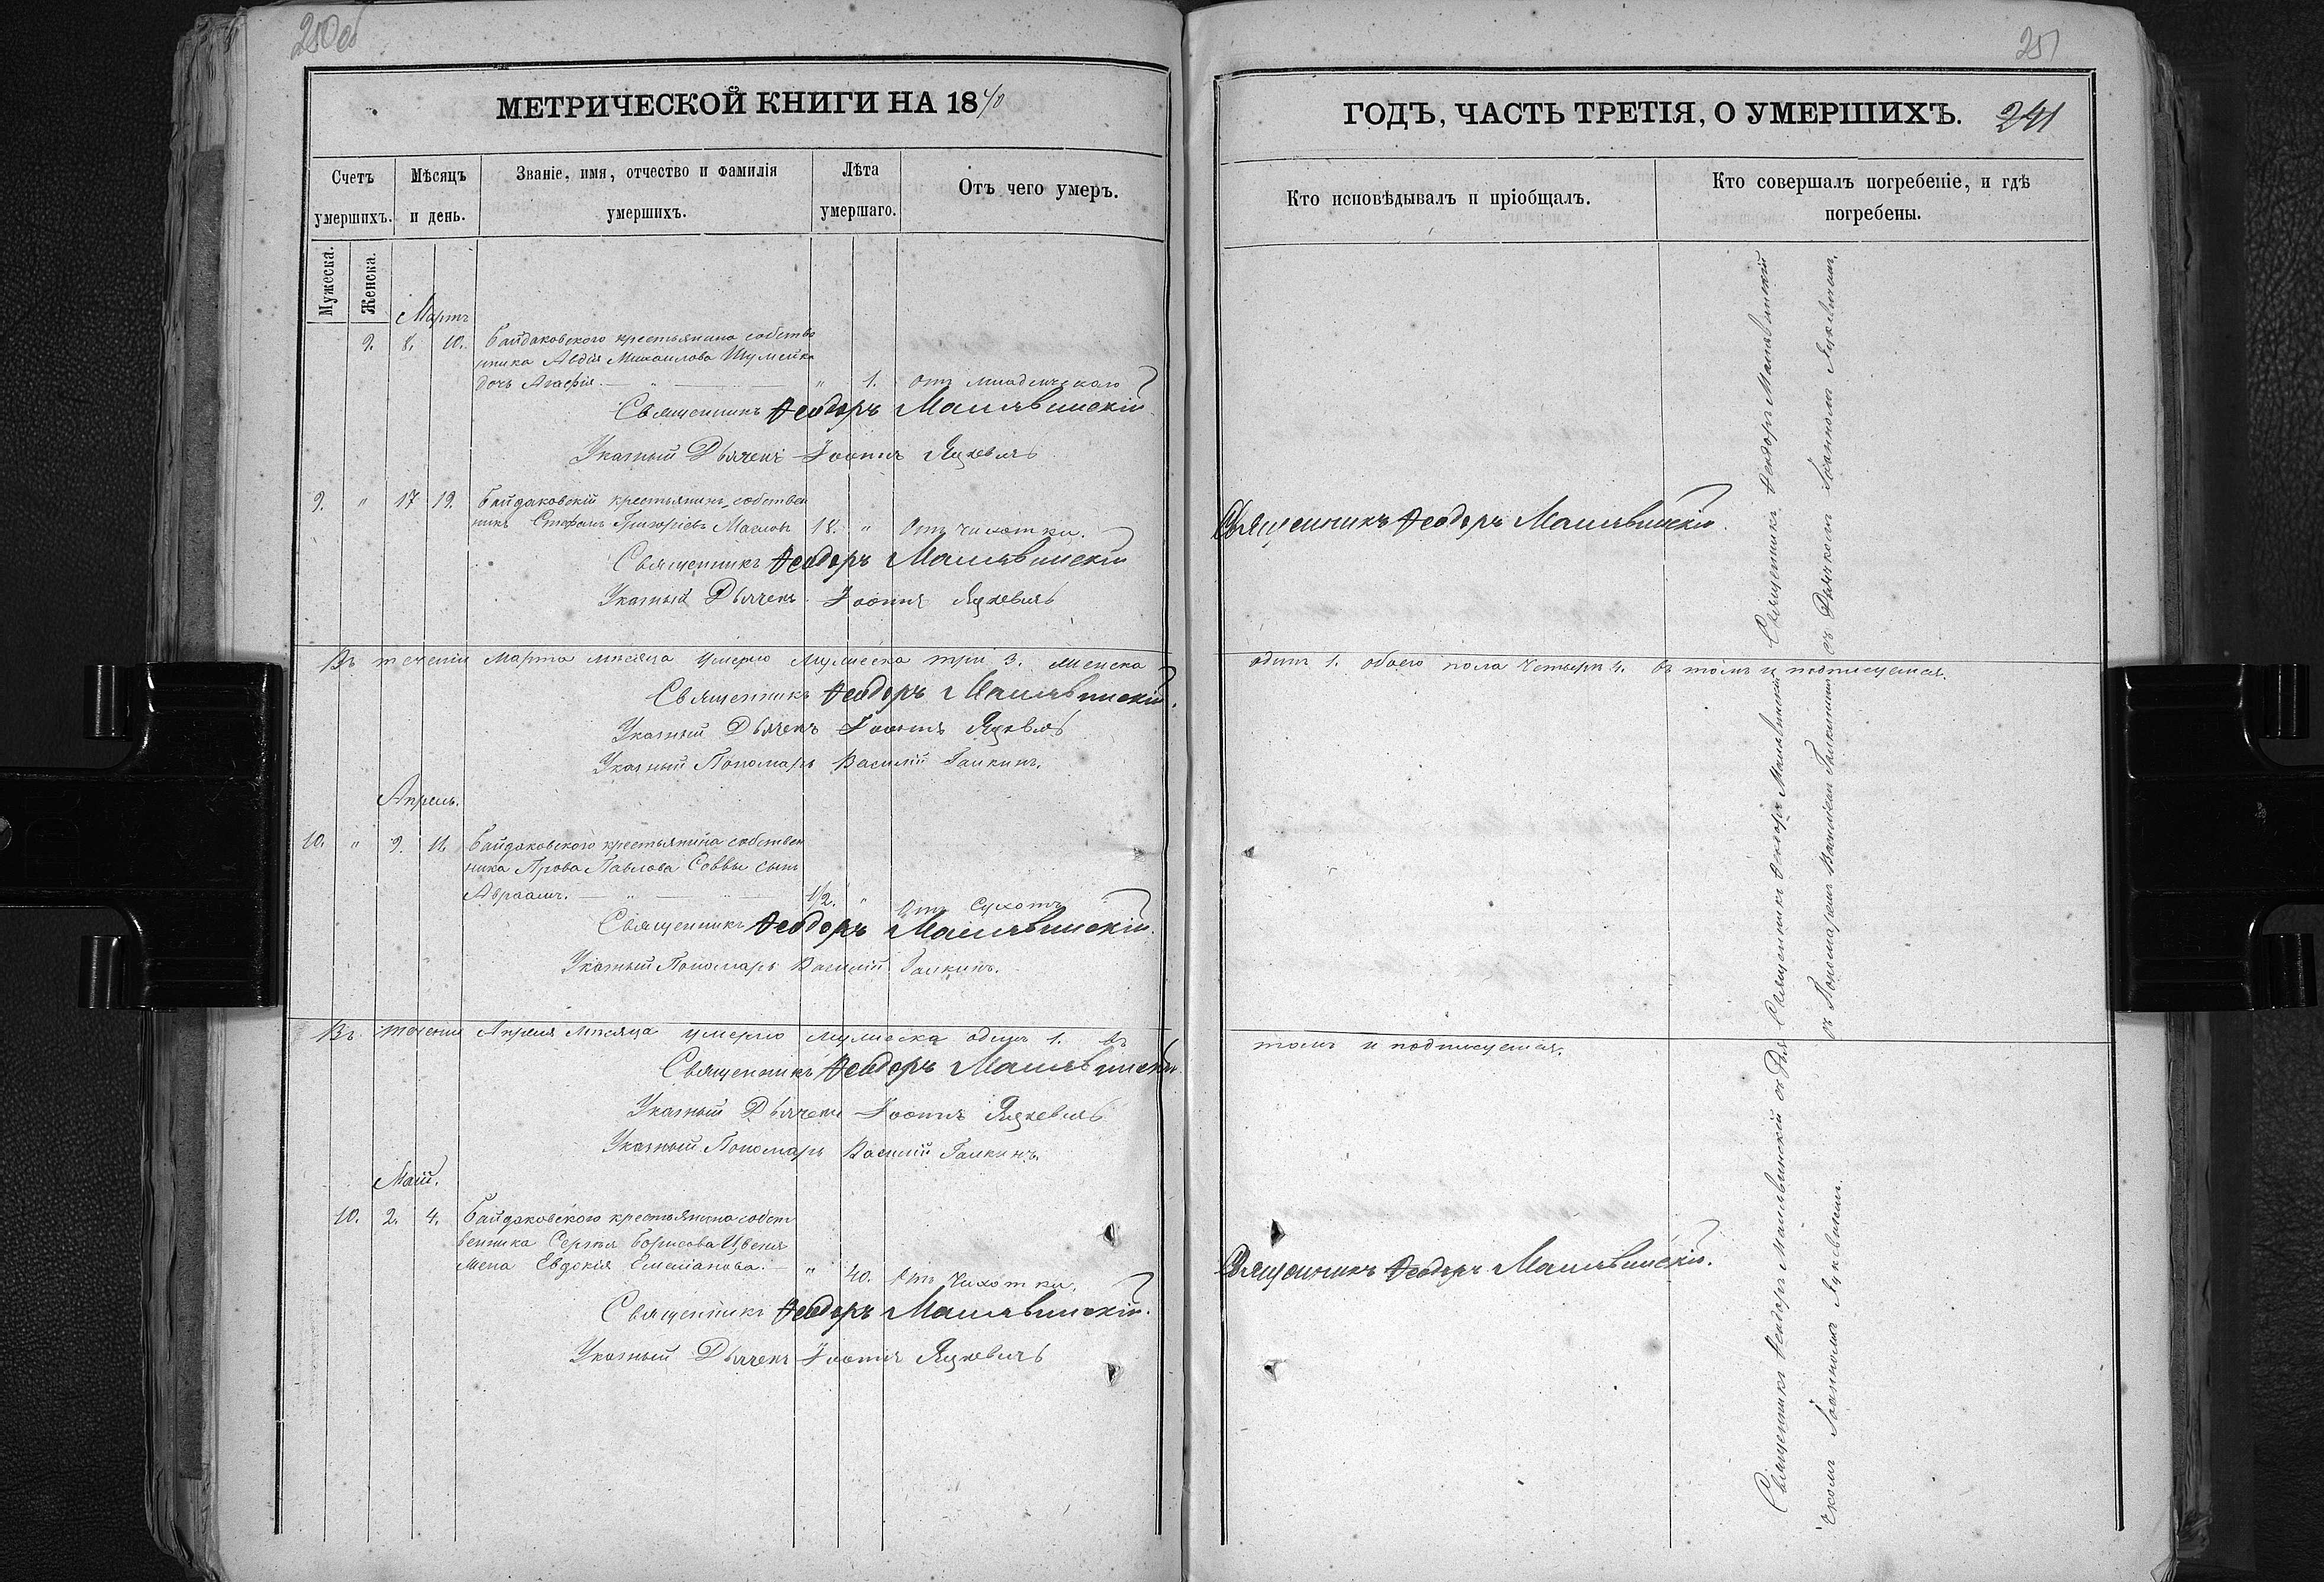 250об
МЕТРИЧЕСКОЙ КНИГИ НА 18
Счетъ умершихъ.
Мѣсяцъ и день.
Званіе, имя, отчество и фамилія умершихъ.
Лѣта умершаго.
Отъ чего умеръ.
Мужеска.
Женска.
Мартъ
9. 8. 10. Байдаковского крестьянина собствен
ника Авдія Михаилова Шумейка
дочь Агафія. — " — " 1. Отъ младенческаго
Священникъ Ѳеодоръ
Указный Дьячекъ Іоаннъ Яцкевичъ
9. " 17 19. Байдаковскій крестьянинъ собствен
никъ Стефанъ Григоріевъ Маслов 18. " Отъ чихотки.
Священникъ Ѳеодоръ
Указный Дьячекъ Іоаннъ Яцкевичъ
Въ теченіи Марта мѣсяца умерло мужеска три 3. женска
Священникъ Ѳеодоръ
Указный Дьячекъ Іоаннъ Яцкевичъ
Указный Пономарь Василій Галкинъ.
Апрель.
10. " 9. 11. Байдаковского крестьянина собствен
ника Прова Павлова Соввы сынъ
Авраамъ. — " — 1/2. " Отъ Сухотъ
Священникъ Ѳеодоръ
Указный Пономарь Василій Галкинъ.
Въ теченіи Апреля мѣсяца умерло мужеска одинъ 1. въ
Священникъ Ѳеодоръ
Указный Дьячекъ Іоаннъ Яцкевичъ
Указный Пономарь Василій Галкинъ.
Май.
10. 2. 4. Байдаковского крестьянина собст
венника Сергія Борисова
жена Евдокія Емеліанова. — " 40. Отъ Чихотки.
Священникъ Ѳеодоръ
Указный Дьячекъ Іоаннъ Яцкевичъ
251
ГОДЪ, ЧАСТЬ ТРЕТІЯ, О УМЕРШИХЪ.
241
Кто исповѣдывалъ и пріобщалъ.
Кто совершалъ погребеніе, и гдѣ погребены.
Священникъ Ѳеодоръ
Священникъ Ѳеодоръ
съ Дьячкомъ Іоанномъ Яцкевичемъ.
одинъ 1. обоего пола четыри 4. въ томъ и подписуемся.
Священникъ Ѳеодоръ
съ Пономаремъ Василіемъ Галкинымъ
томъ и подписуемся.
Священникъ Ѳеодоръ
Священникъ Ѳеодоръ съ Дья
чкомъ Іоанномъ Яцкевичемъ.